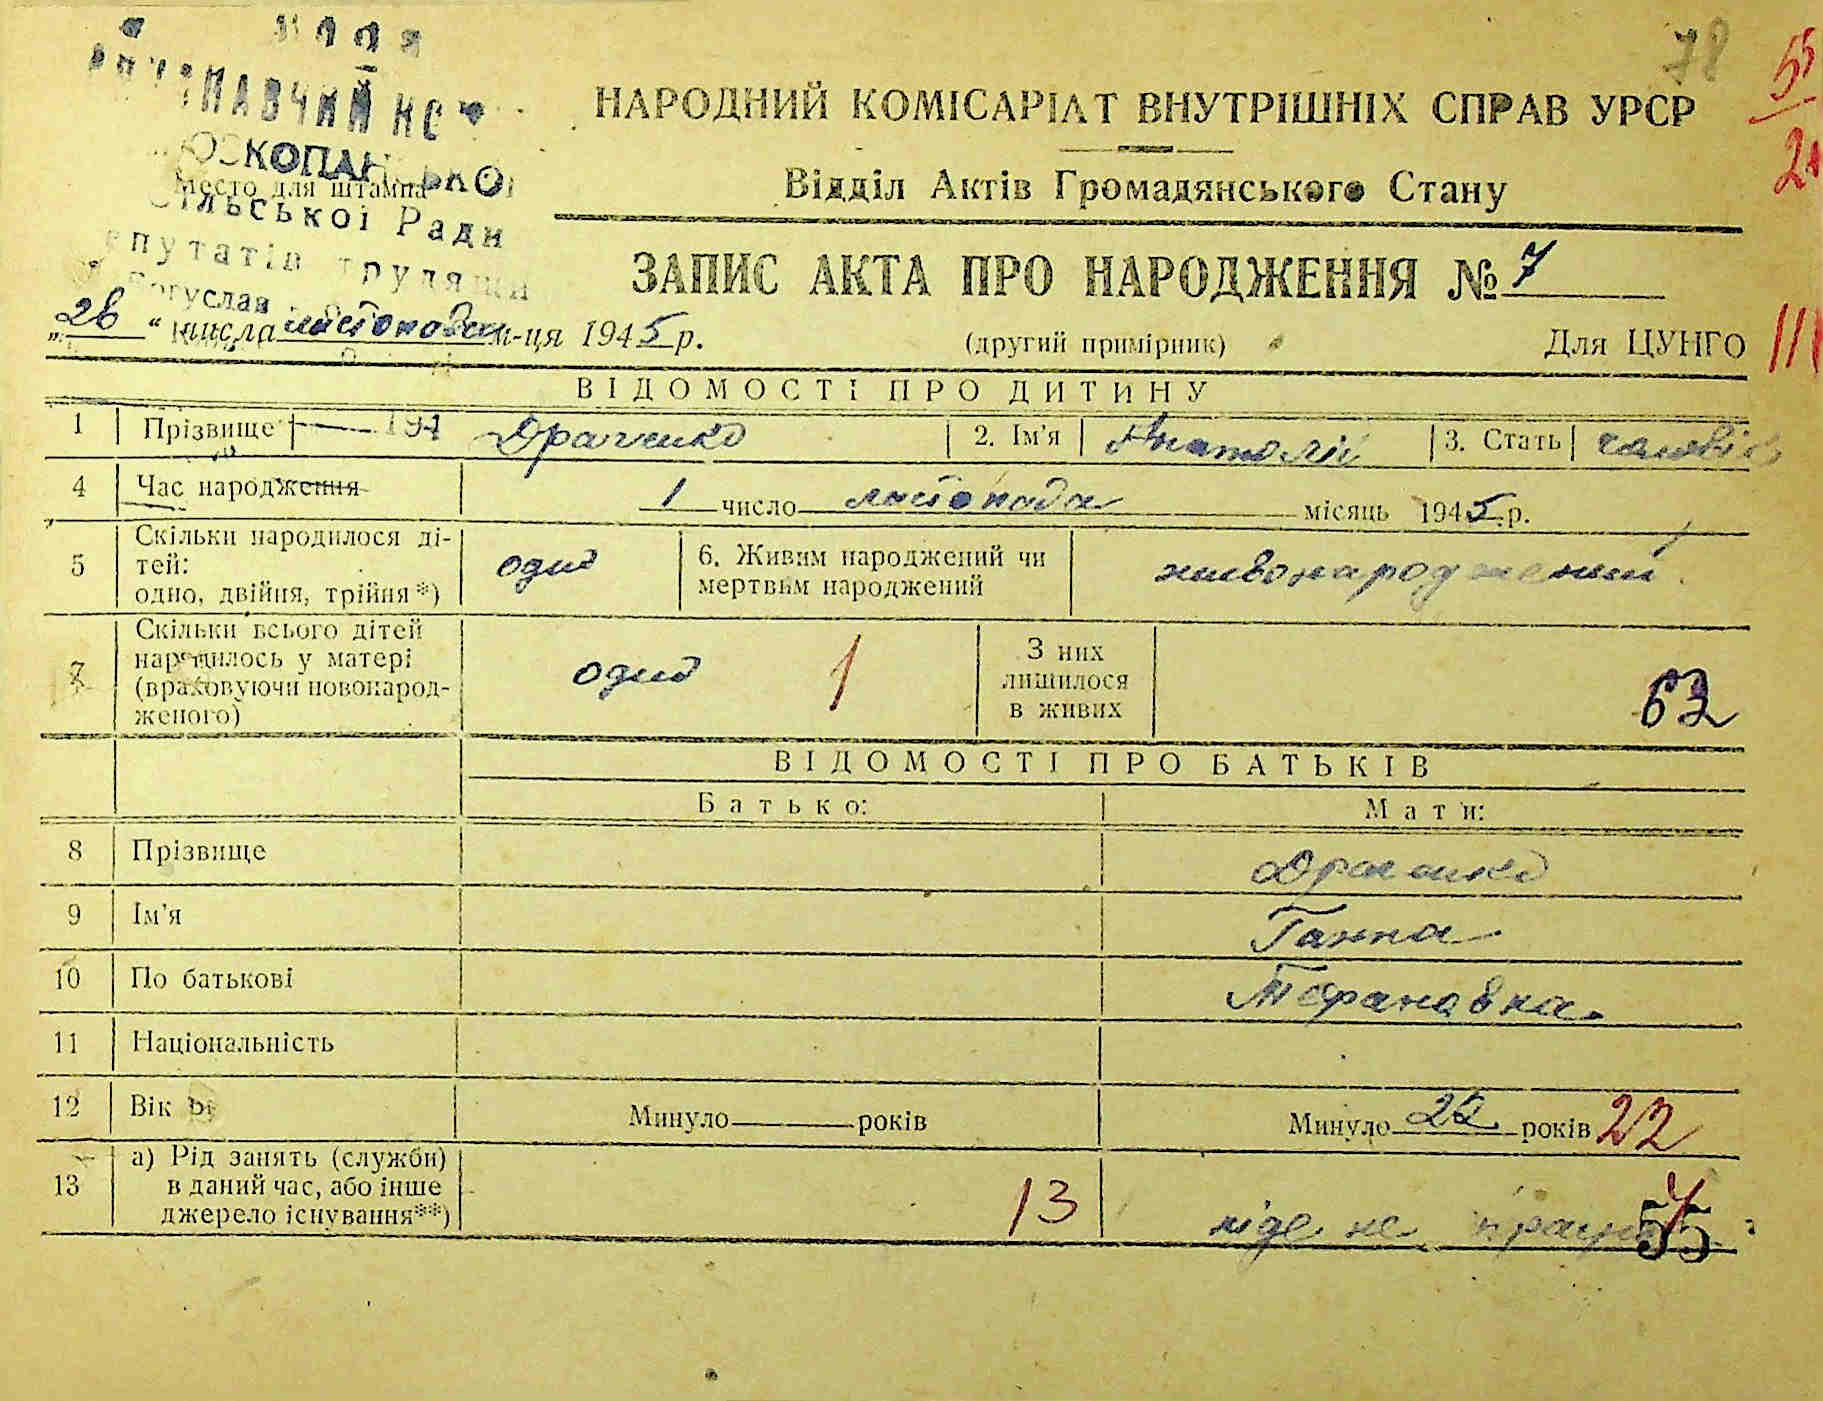 78
55
21
НАВЧИЙ
КОПАН
Место для штампа
Сільської Ради
путатів трудящи
Богуслав
НАРОДНИЙ КОМІСАРІАТ ВНУТРІШНІХ СПРАВ УРСР
Відділ Актів Громадянського Стану
ЗАПИС АКТА ПРО НАРОДЖЕННЯ № 7
„28“ числа листопада м-ця 1945 р.
(другий примірник) Для ЦУНГО
ВІДОМОСТІ ПРО ДИТИНУ
1 Прізвище 194 Драченко 2. Ім'я Анатолій 3. Стать чоловіч
4 Час народження 1 число листопада місяць 1945 р.
5 Скільки народилося дітей: одно, двійня, трійня*) одно 6. Живим народжений чи мертвим народжений живонароджений
7 Скільки всього дітей народилось у матері (враховуючи новонародженого) одно 1 З них лишилося в живих 63
ВІДОМОСТІ ПРО БАТЬКІВ
Батько: Мати:
8 Прізвище Драченко
9 Ім'я Ганна
10 По батькові Тарановна.
11 Національність
12 Вік Минуло років Минуло 22 років 22
13 а) Рід занять (служби) в даний час, або інше джерело існування**) 13 ніде не працює 55